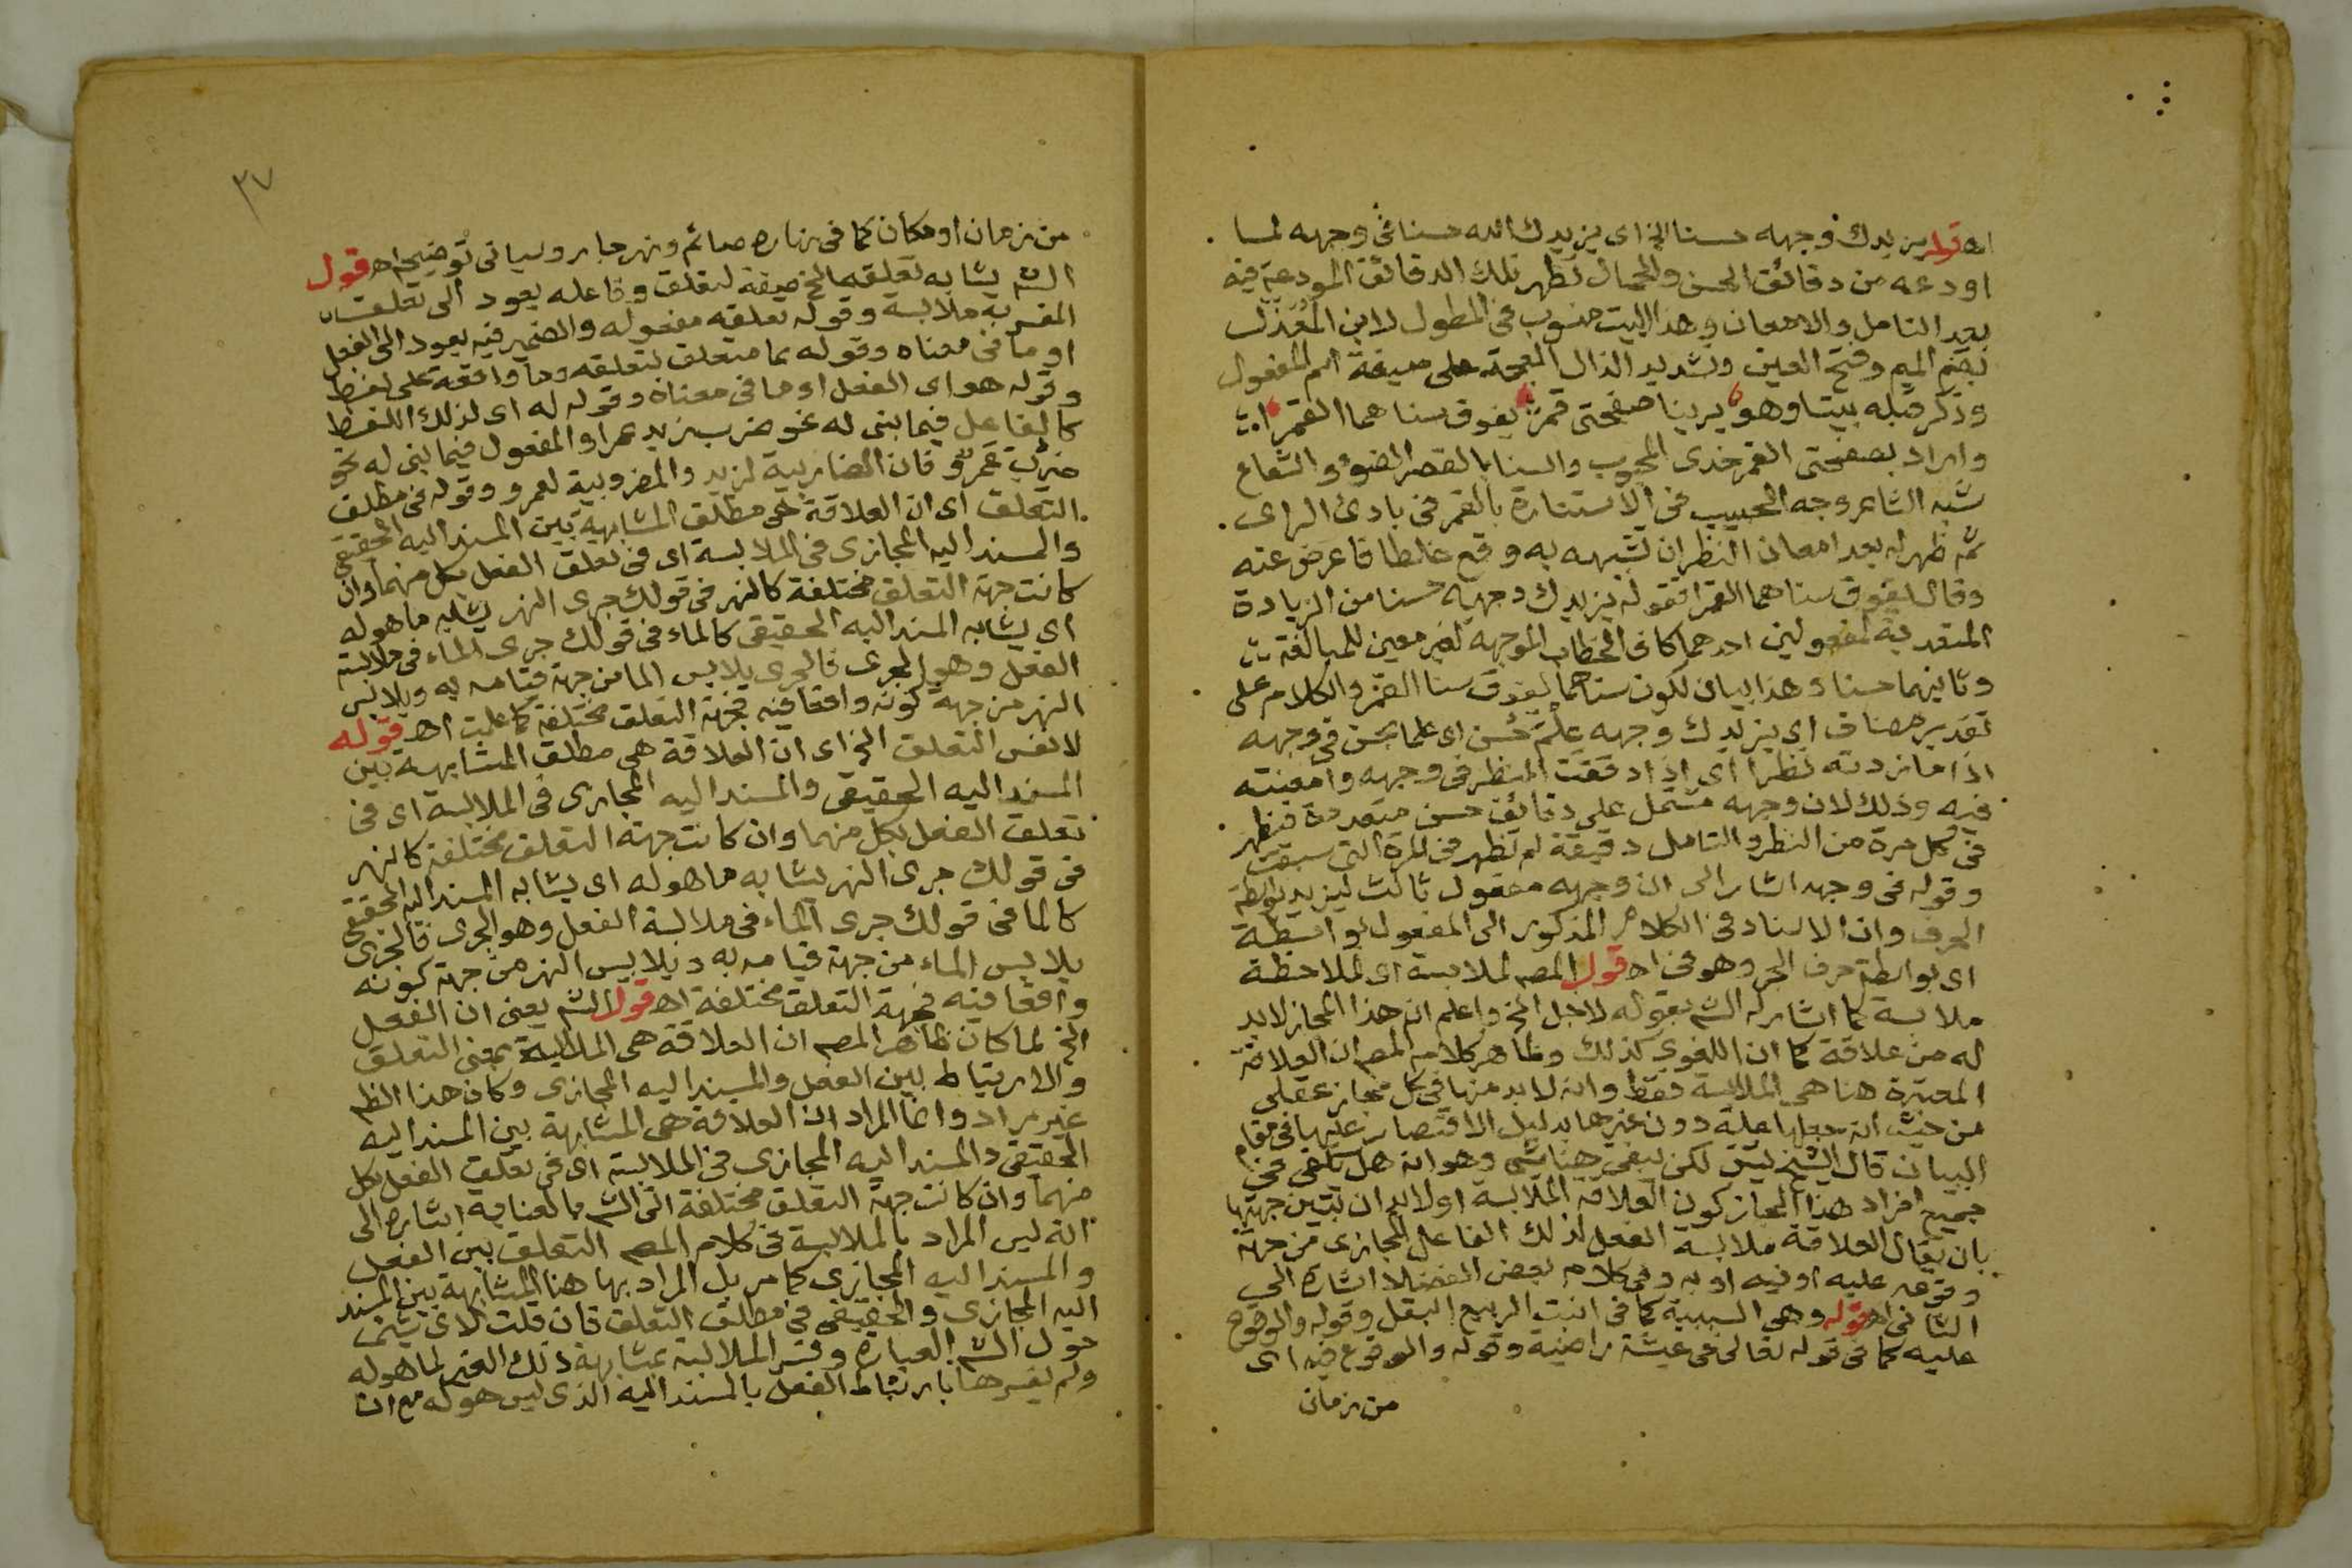 اهـ قوله يزيدك وجهه حسنا الخ اى يزيدك الله حسنا فى وجهه لما
اودعه من دقائق الحسن والجمال تظهر تلك الدقائق المودعة فيه
بعد التامل والامعان وهذا البيت منسوب فى المطول لابن المعذل
بضم الميم وفتح العين وتشديد الذال المعجمة على صيغة اسم المفعول
وذكر قبله بيتا وهو يرينا صفحتى قمر يفوق سناهما القمرا
واراد بصفحتى القمر خدى المحبوب والسنا بالقصر الضوء والشعاع
شبه الشاعر وجه الحبيب فى الاستنارة بالقمر فى بادئ الراى
ثم ظهر له بعد امعان النظر ان تشبيهه به وقع غلطا فاعرض عنه
وقال يفوق سناهما القمرا فقوله يزيدك وجهه حسنا من الزيادة
المتعدية لمفعولين احدهما كاف الخطاب الموجهة لغير معين للمبالغة
وثانيهما حسنا وهذا بيان لكون سناهما يفوق سنا القمر والكلام على
تقدير مضاف اى يزيدك وجهه علم حسن اى علما بحسن فى وجهه
اذا ما زدته نظرا اى اذا دققت النظر فى وجهه وامعنته
فيه وذلك لان وجهه مشتمل على دقائق حسن متعددة فيظهر
فى كل مرة من النظر والتامل دقيقة لم تظهر فى المرة التى سبقت
وقوله فى وجهه اشار الى ان وجهه مفعول ثالث ليزيد بواسطة
الحرف وان الاسناد فى الكلام المذكور الى المفعول بواسطة
اى بواسطة حرف الجر وهو فى اهـ قول المصـ لملابسة اى لملاحظة
ملابسة كما اشار له الشـ بقوله لاجل الخ واعلم ان هذا المجاز لابد
له من علاقة كما ان اللغوى كذلك وظاهر كلام المصـ ان العلاقة
المعتبرة هنا هى الملابسة فقط وانه لابد منها فى كل مجاز عقلى
من حيث انه جعلها علة دون غيرها بدليل الاقتصار عليها فى مقام
البيان قال الشيخ يس لكن يبقى هنا شى وهو انه هل يكفى فى
جميع افراد هذا المجاز كون العلاقة الملابسة او لابد ان تبين جهتها
بان يقال العلاقة ملابسة الفعل لذلك الفاعل المجازى من جهة
وقوعه عليه او فيه او به وفى كلام بعض الفضلا اشارة الى
الثانى اهـ قوله وهى السببية كما فى انبت الربيع البقل وقوله والوقوع
عليه كما فى قوله تعالى فى عيشة راضية وقوله والوقوع فيه اى
من زمان
٣٧
من زمان او مكان كما فى نهاره صائم ونهر جار وسياتى توضيحه اهـ قول
الشـ يشابه تعلقه الخ صيغة لتعلق وفاعله يعود الى تعلق
المفسر به ملابسة وقوله تعلقه مفعوله والضمير فيه يعود الى الفعل
او ما فى معناه وقوله بما متعلق لتعلقه وما واقعة على لفظ
وقوله هو اى الفعل او ما فى معناه وقوله له اى لذلك اللفظ
كالفاعل فيما بنى له نحو ضرب زيد عمرا والمفعول فيما بنى له نحو
ضرب عمرو فان الضاربية لزيد والمضروبية لعمرو وقوله فى مطلق
التعلق اى ان العلاقة هى مطلق المشابهة بين المسند اليه الحقيقى
والمسند اليه المجازى فى الملابسة اى فى تعلق الفعل بكل منهما وان
كانت جهة التعلق مختلفة كالنهر فى قولك جرى النهر يشابه ما هو له
اى يشابه المسند اليه الحقيقى كالماء فى قولك جرى الماء فى ملابسة
الفعل وهو الجرى فالجرى يلابس الما من جهة قيامه به ويلابس
النهر من جهة كونه واقعا فيه فجهة التعلق مختلفة كما علمت اهـ قوله
لا نفس التعلق الخ اى ان العلاقة هى مطلق المشابهة بين
المسند اليه الحقيقى والمسند اليه المجازى فى الملابسة اى فى
تعلق الفعل بكل منهما وان كانت جهة التعلق مختلفة كالنهر
فى قولك جرى النهر يشابه ما هو له اى يشابه المسند اليه الحقيقى
كالما فى قولك جرى الماء فى ملابسة الفعل وهو الجرى فالجرى
يلابس الماء من جهة قيامه به ويلابس النهر من جهة كونه
واقعا فيه فجهة التعلق مختلفة اهـ قول الشـ يعنى ان الفعل
الخ لما كان ظاهر المصـ ان العلاقة هى الملابسة بمعنى التعلق
والارتباط بين الفعل والمسند اليه المجازى وكان هذا الظـ
غير مراد وانما المراد ان العلاقة هى المشابهة بين المسند اليه
الحقيقى والمسند اليه المجازى فى الملابسة اى فى تعلق الفعل بكل
منهما وان كانت جهة التعلق مختلفة اتى الشـ بالعناية اشارة الى
انه ليس المراد بالملابسة فى كلام المصـ التعلق بين الفعل
والمسند اليه المجازى كما مر بل المراد بها هنا المشابهة بين المسند
اليه المجازى والحقيقى فى مطلق التعلق فان قلت لاى شى
حول الشـ العبارة وفسر الملابسة بمشابهة ذلك الغير لما هو له
ولم يفسرها بارتباط الفعل بالمسند اليه الذى ليس هو له مع ان